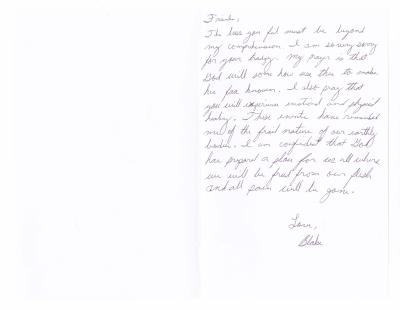 Frank,
The loss you feel must be beyond
my comprehension. I am so very sorry
for your tragedy. My prayer is that
God will some how use this to make
his face known. I also pray that
you will experience emotional and physical
healing. These events have reminded
me of the frail nature of our earthly
bodies. I am confident that God
has prepared a place for us all where
we will be freed from our flesh
and all pain will be gone.
Love,
Blake